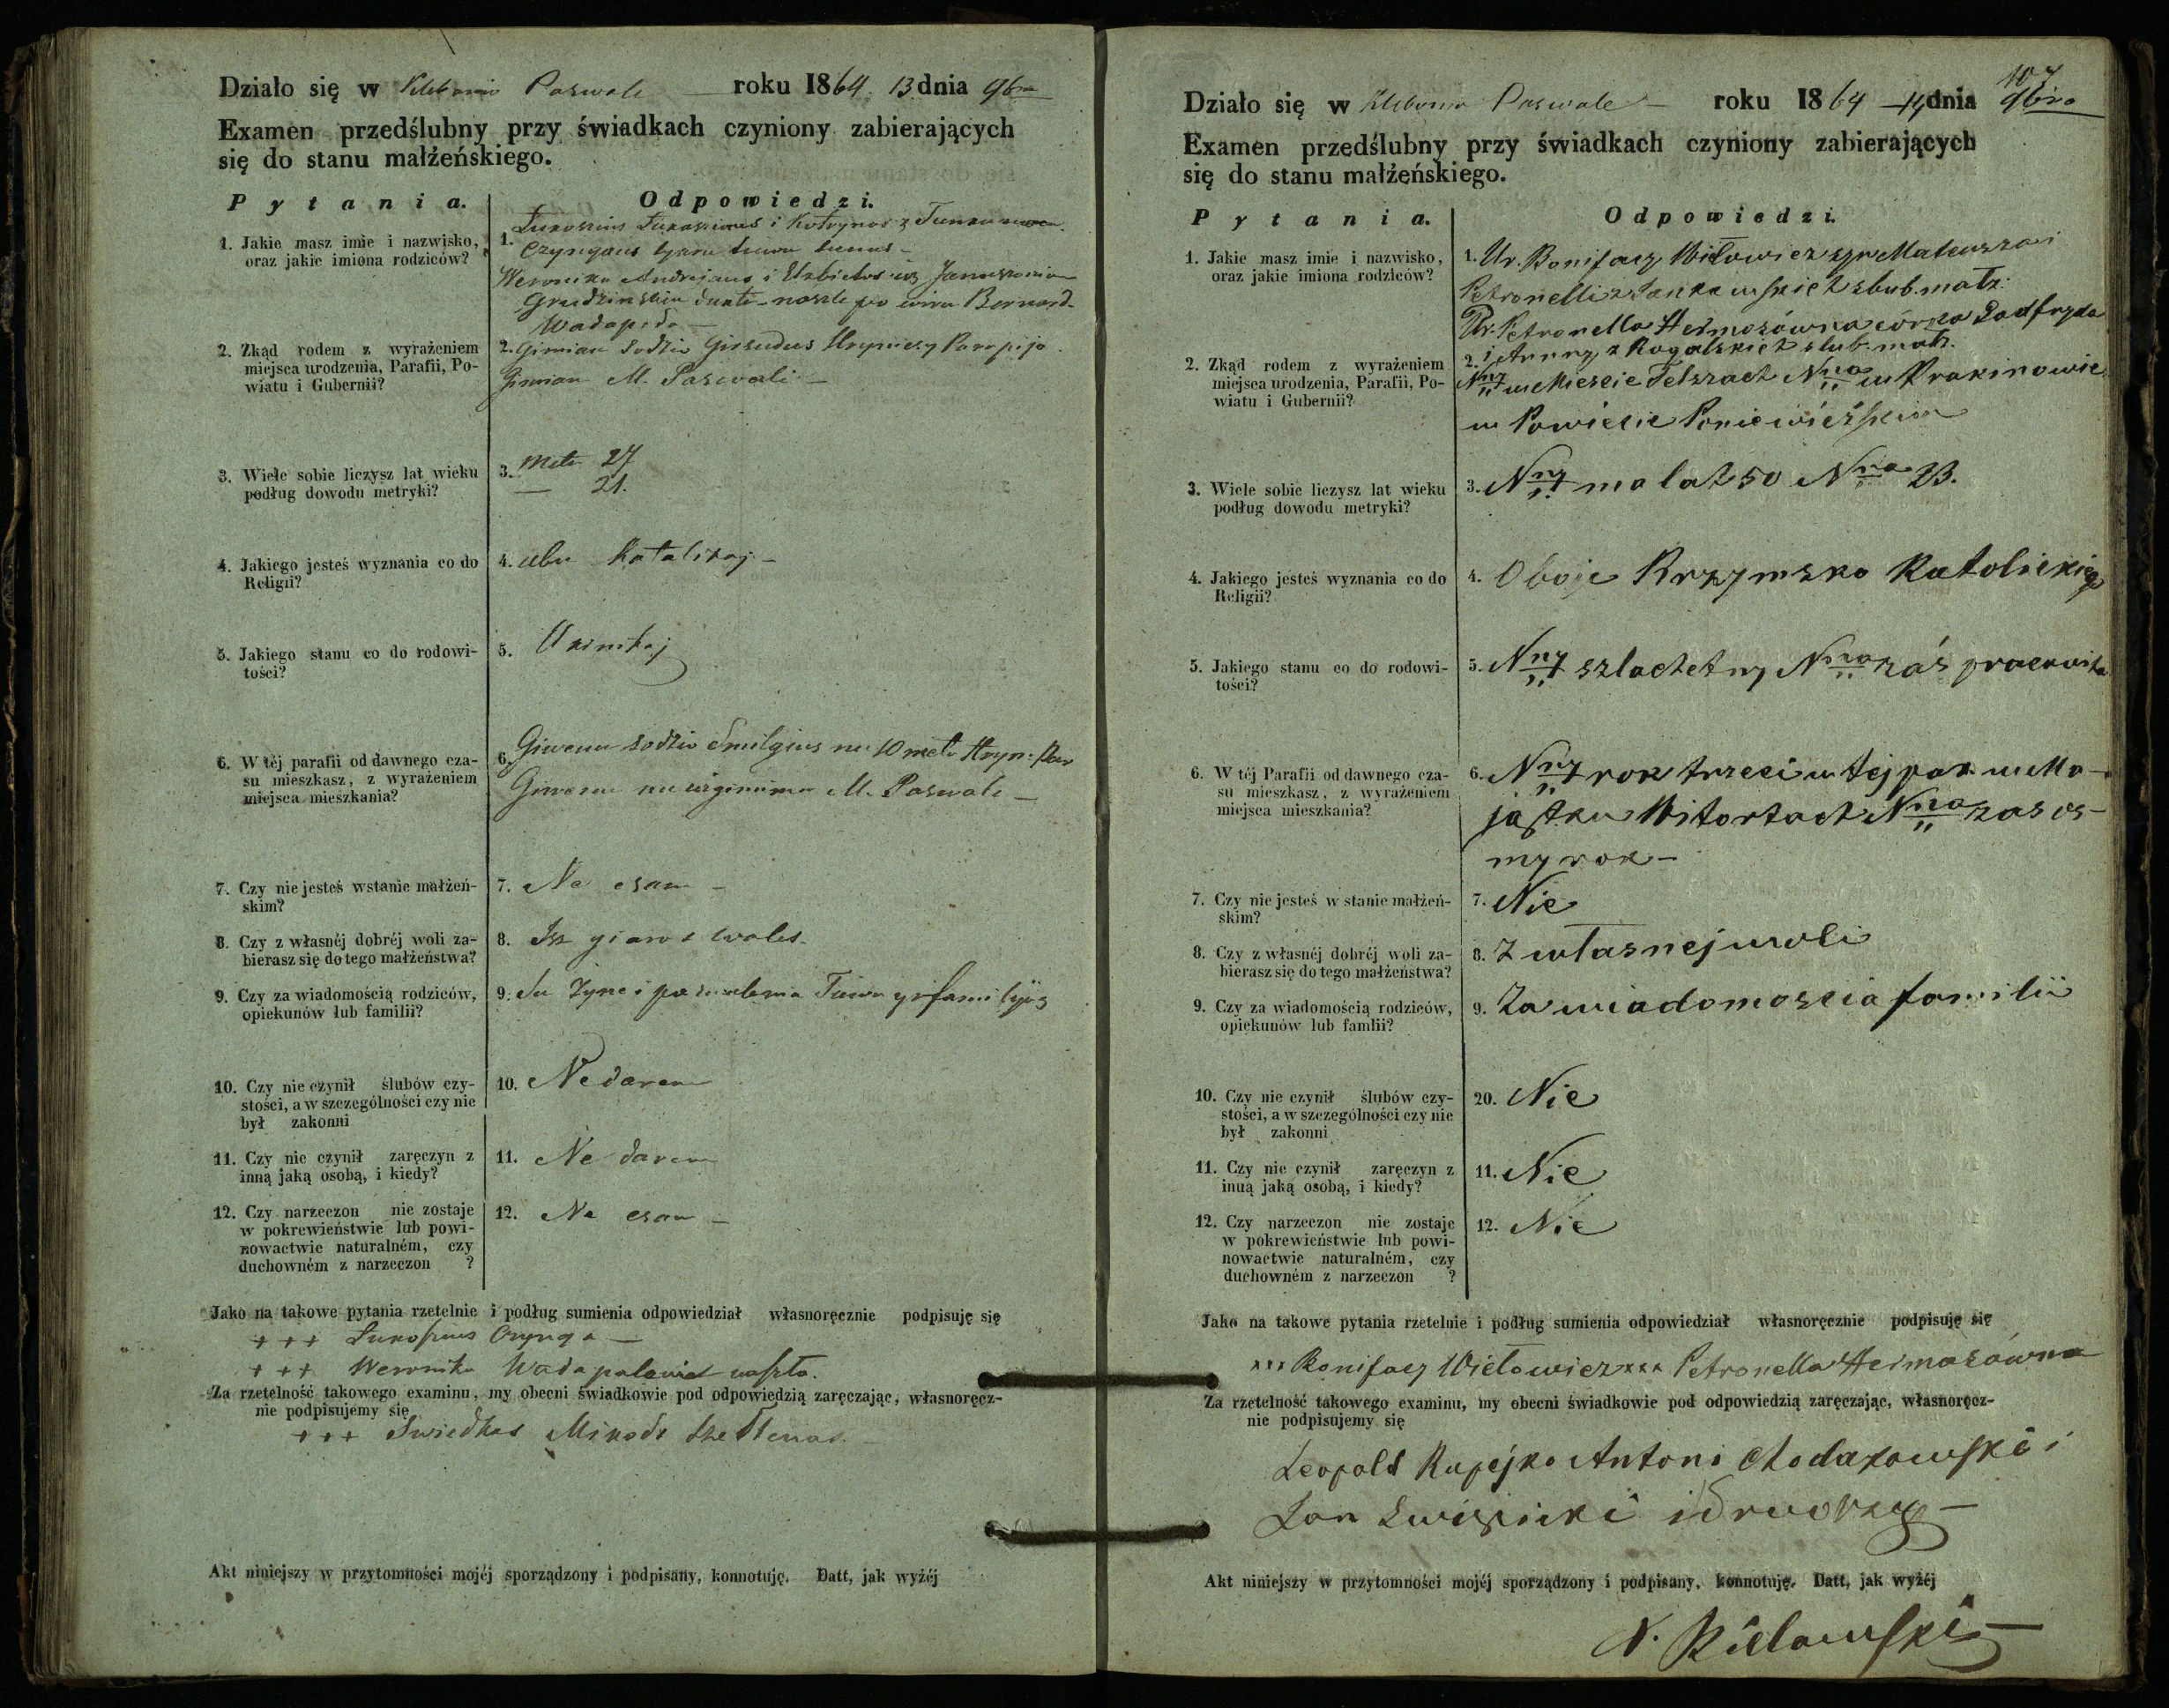 Działo się w Klebanii Poswole — roku 1864. 13 dnia 9bra
Examen przedślubny przy świadkach czyniony zabierających
się do stanu małżeńskiego.
Pytania.
Odpowiedzi.
1. Jakie masz imie i nazwisko,
oraz jakie imiona rodziców?
1. Łukoszius Łukosziaus i Kotrynos z
Czyngaus
Weronika Andrejaus i Elzbietos isz
Grudzinskiu naszle po wiru Bernard.
2. Zkąd rodem z wyrażeniem
miejsca urodzenia, Parafii, Po-
wiatu i Gubernii?
2. Gimiau Sodziu Parapijo
Gimiau M. Poswoli —
3. Wiele sobie liczysz lat wieku
podług dowodu metryki?
3. Metu 27
— 21.
4. Jakiego jesteś wyznania co do
Religii?
4. abu Katalikaj —
5. Jakiego stanu co do rodowi-
tości?
5. Ukinikaj
6. W téj parafii od dawnego cza-
su mieszkasz, z wyrażeniem
miejsca mieszkania?
6. Giwenu Sodziu Smilgius nu 10 metu
Giwenu nu uzgimima M. Poswole —
7. Czy nie jesteś w stanie małżeń-
skim?
7. Ne esam —
8. Czy z własnéj dobréj woli za-
bierasz się do tego małżeństwa?
8. Isz gieros wales.
9. Czy za wiadomością rodziców,
opiekunów lub familii?
9. Su Zyne i pazwalema Tiewu yr familyjos
10. Czy nie czynił ślubów czy-
stości, a w szczególności czy nie
był zakonni
10. Ne darem
11. Czy nie czynił zaręczyn z
inną jaką osobą, i kiedy?
11. Ne darem
12. Czy narzeczon nie zostaje
w pokrewieństwie lub powi-
nowactwie naturalném, czy
duchowném z narzeczon ?
12. Ne esam —
Jako na takowe pytania rzetelnie i podług sumienia odpowiedział własnoręcznie podpisuję się
+++ Łukoszius Czynga —
+++ Weronika naszla.
Za rzetelność takowego examinu, my obecni świadkowie pod odpowiedzią zaręczając, własnoręcz-
nie podpisujemy się
+++ Swiedkas
Akt niniejszy w przytomności mojéj sporządzony i podpisany, konnotuję. Datt, jak wyżéj
107
Działo się w Klebanii Poswole — roku 1864 14 dnia 9bra
Examen przedślubny przy świadkach czyniony zabierających
się do stanu małżeńskiego.
Pytania.
Odpowiedzi.
1. Jakie masz imie i nazwisko,
oraz jakie imiona rodziców?
1. Ur. Bonifacy Witowicz syn Mateusza i
Petronelli z Jankowskich slub. malz.
Ur. Petronella Hejmosówna córka Godfryda
i Anny z Rogalskich slub. malz.
2. Zkąd rodem z wyrażeniem
miejsca urodzenia, Parafii, Po-
wiatu i Gubernii?
2. Nny w Miescie Telszach Nna w Prakinowie
w Powiecie Poniewiéżskim
3. Wiele sobie liczysz lat wieku
podług dowodu metryki?
3. Nny ma lat 50 Nna 23.
4. Jakiego jesteś wyznania co do
Religii?
4. Oboje Rzymsko Katolickiego
5. Jakiego stanu co do rodowi-
tości?
5. Nny szlachetny Nna zaś pracowita
6. W téj Parafii od dawnego cza-
su mieszkasz, z wyrażeniem
miejsca mieszkania?
6. Nny rok trzeci w tej par. w Ma-
jątku Witortach Nna zas os-
my rok —
7. Czy nie jesteś w stanie małżeń-
skim?
7. Nie
8. Czy z własnéj dobréj woli za-
bierasz się do tego małżeństwa?
8. Z własnej woli
9. Czy za wiadomością rodziców,
opiekunów lub famlii?
9. Za wiadomoscia familii
10. Czy nie czynił ślubów czy-
stości, a w szczególności czy nie
był zakonni
20. Nie
11. Czy nie czynił zaręczyn z
inuą jaką osobą, i kiedy?
11. Nie
12. Czy narzeczon nie zostaje
w pokrewieństwie lub powi-
nowactwie naturalném, czy
duchowném z narzeczon ?
12. Nie
Jako na takowe pytania rzetelnie i podług sumienia odpowiedział własnoręcznie podpisuję się
xxx Bonifacy Witowicz xxx Petronella Hejmosówna
Za rzetelność takowego examinu, my obecni świadkowie pod odpowiedzią zaręczając, własnoręcz-
nie podpisujemy się
Leopold Rupejko Antoni Chodakowski i
Jan
Akt niniejszy w przytomności mojéj sporządzony i podpisany, konnotuję. Datt, jak wyżéj
N. Bielawski